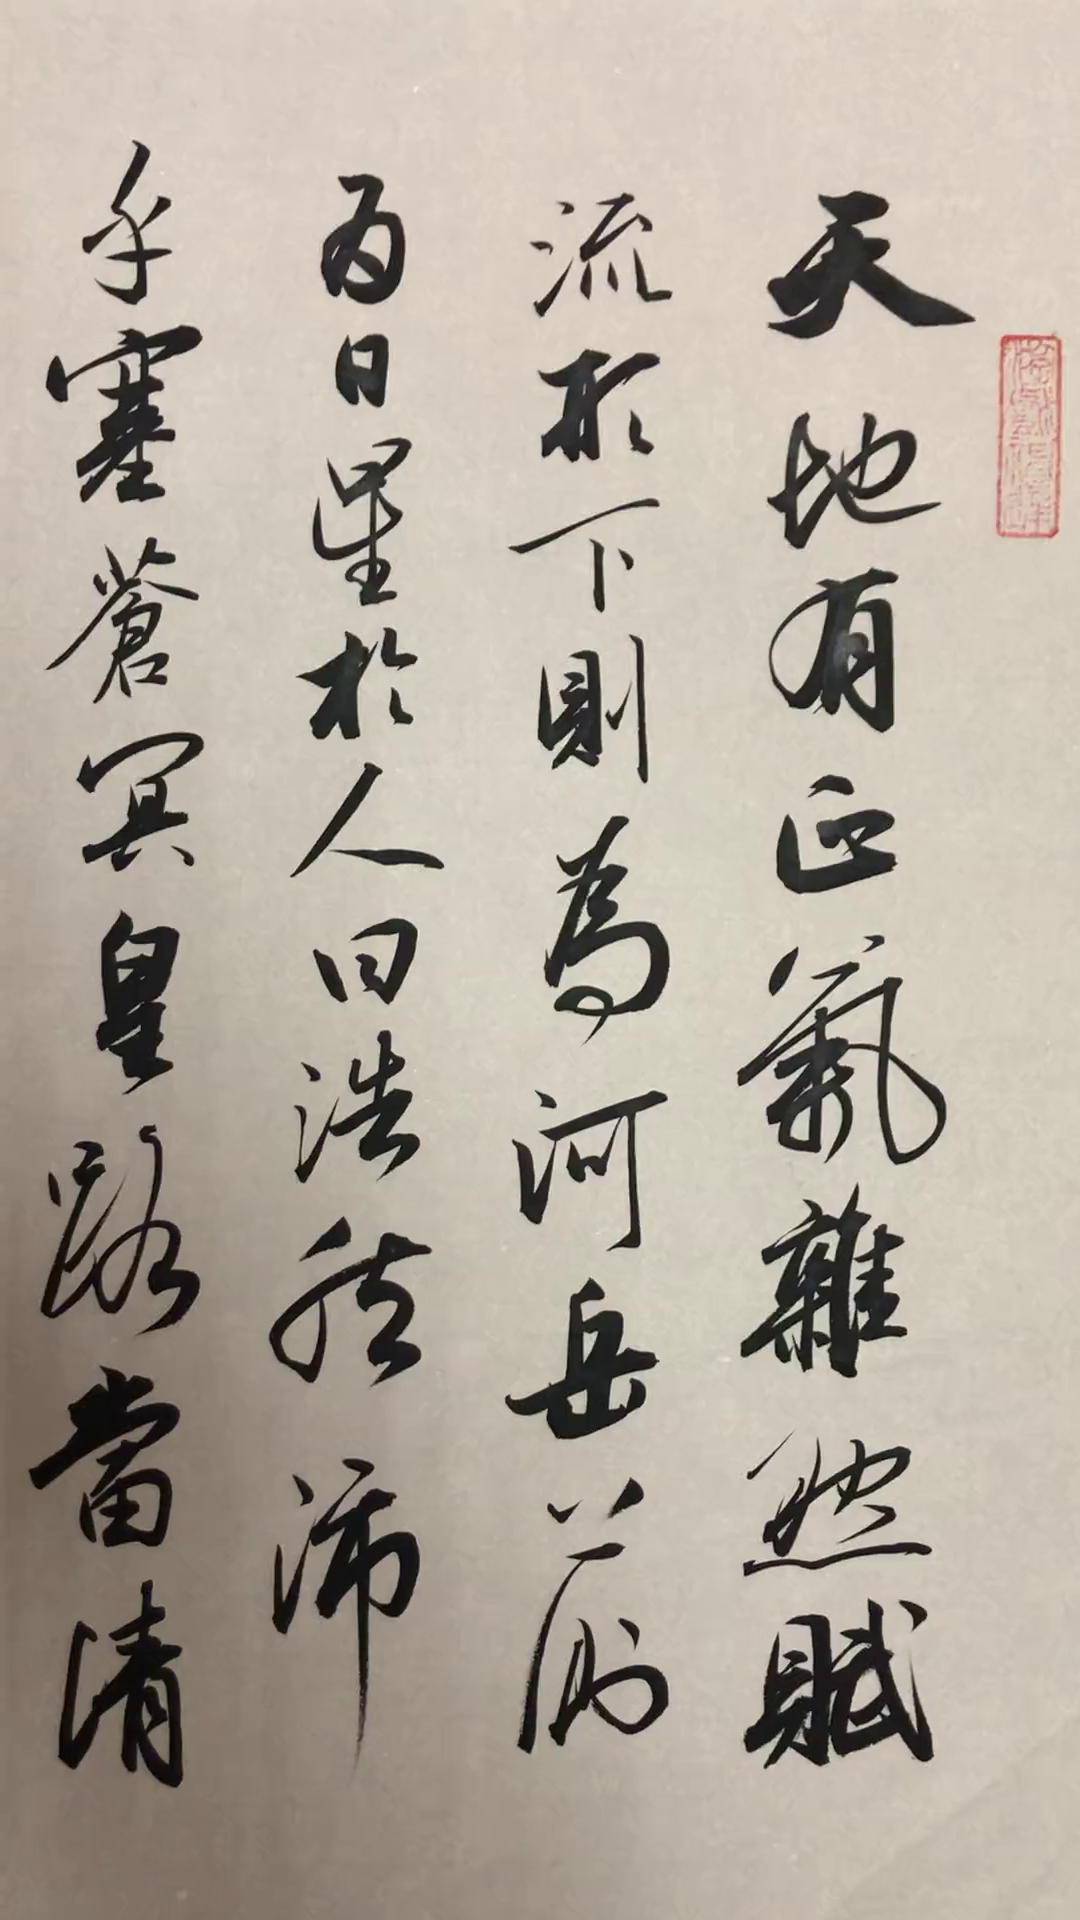 天地有正氣雜然賦
流形下則為河岳上則
為日星於人曰浩然沛
乎塞蒼冥皇路當清